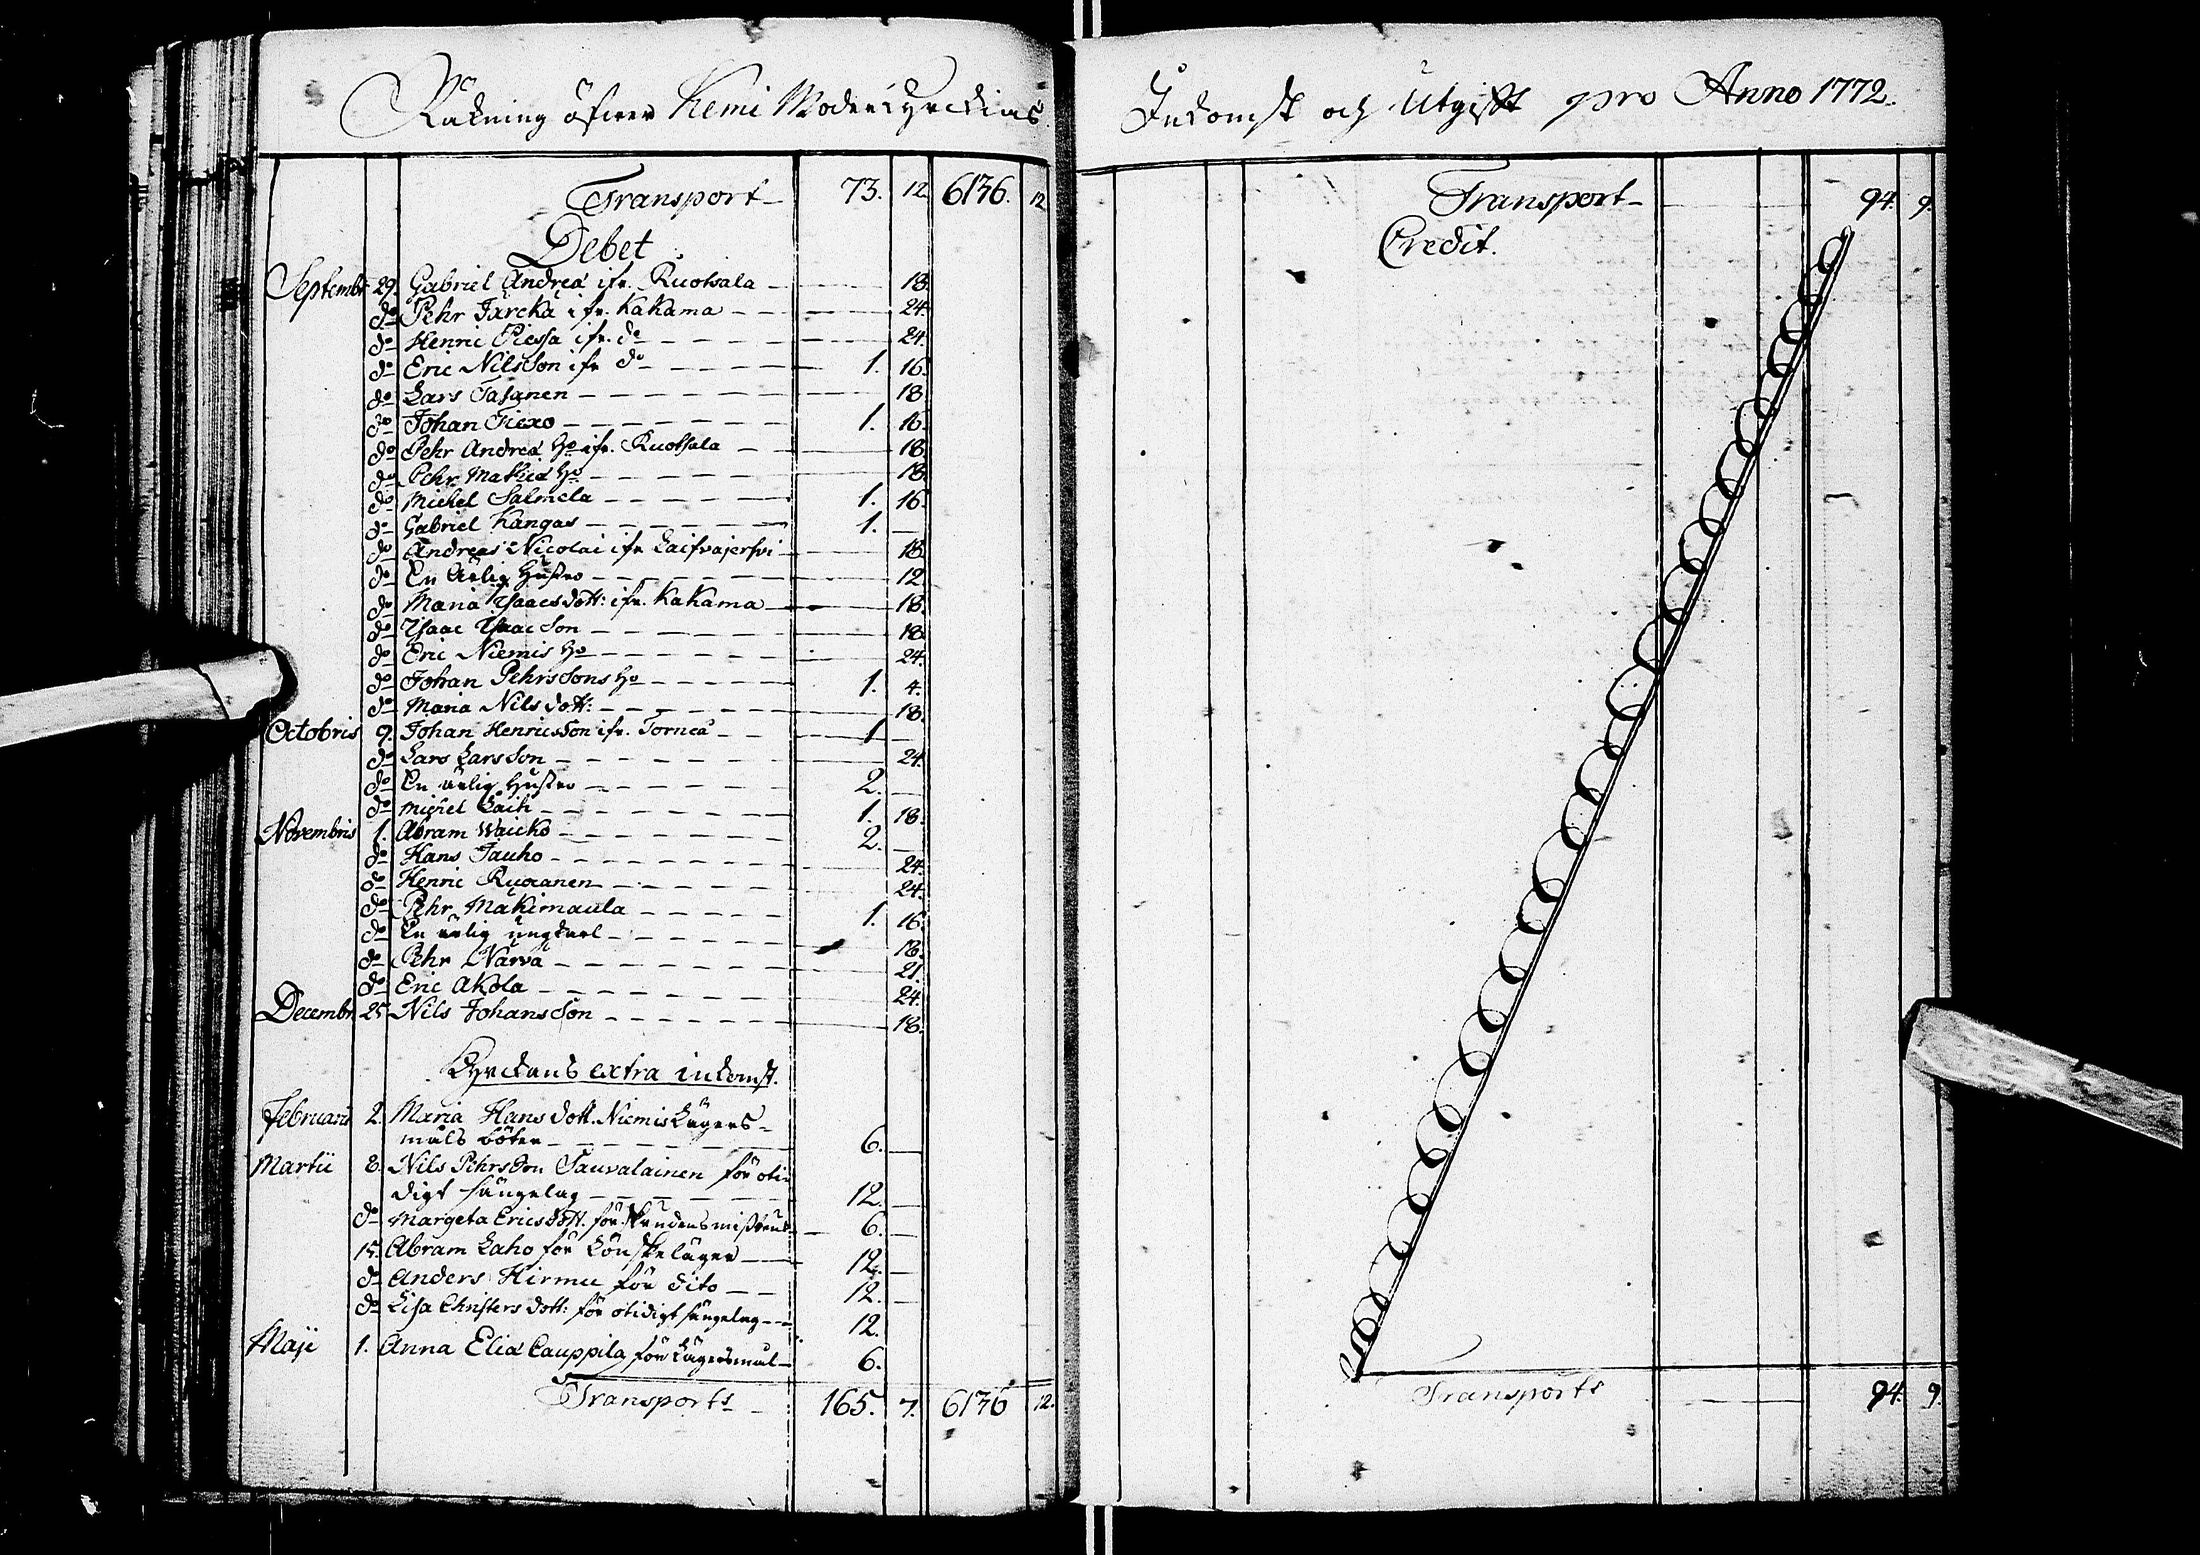 Räkning öfwer Kemi Moderkyrckias
Transport 73. 12 6136. 12
Debet
Septembr 29. Gabriel Andreæ ifr. Ruotsala 18.
do Pehr Jarcka ifr. Kakama 24.
do Henric Piessa ifr. do 24.
do Eric Nilsson ifr do 1. 16.
do Lars Tasanen 18.
do Johan Tiexo 1. 16.
do Pehr Andreæ Ho ifr. Ruotsala 18.
do Pehr Mathiæ Ho 18.
do Michel Salmela 1. 16.
do Gabriel Kangas 1.
do Andreas Nicolai ifr Laifvajerfvi 18.
do En ärlig Hustro 12.
do Maria Isaacsdott: ifr. Kakama 18.
do Isaac Isaacson 18.
do Eric Niemis Ho 24.
do Johan Pehrssons Ho 1. 4.
do Maria Nilsdott: 18.
Octobris 9. Johan Henricsson ifr. Torneå 1
do Lars Larsson 24.
do En ärlig Hustro 2.
do Michel Laiti 1. 18.
Novembris 1. Abram Waicko 2.
do Hans Jauho 24.
do Henric Ruoxanen 24.
do Pehr Makimaula 1. 16.
do En ärlig ungkarl 18.
do Pehr Narva 21.
do Eric Akola 24.
Decembr 25 Nils Johansson 18.
Kyrckans extra inkomst.
Februarii 2. Maria Hansdott. Niemis Lägers-
måls böter 6.
Martii 8. Nils Pehrsson Sauvalainen för oti
digt sängelag 12.
do Margeta Ericsdott. för skrudens missbruk 6.
15. Abram Laho för Lönskeläger 12.
do Anders Hirmu för dito 12.
do Lisa Christersdott: för otidigt sängelag 12.
Maji 1. Anna Eliæ Cauppila för Lägersmål 6.
Transports 165. 7. 6136 12.
Inkomst och Utgifft pro Anno 1772.
Transport 94. 9.
Credit.
Transports 94. 9.